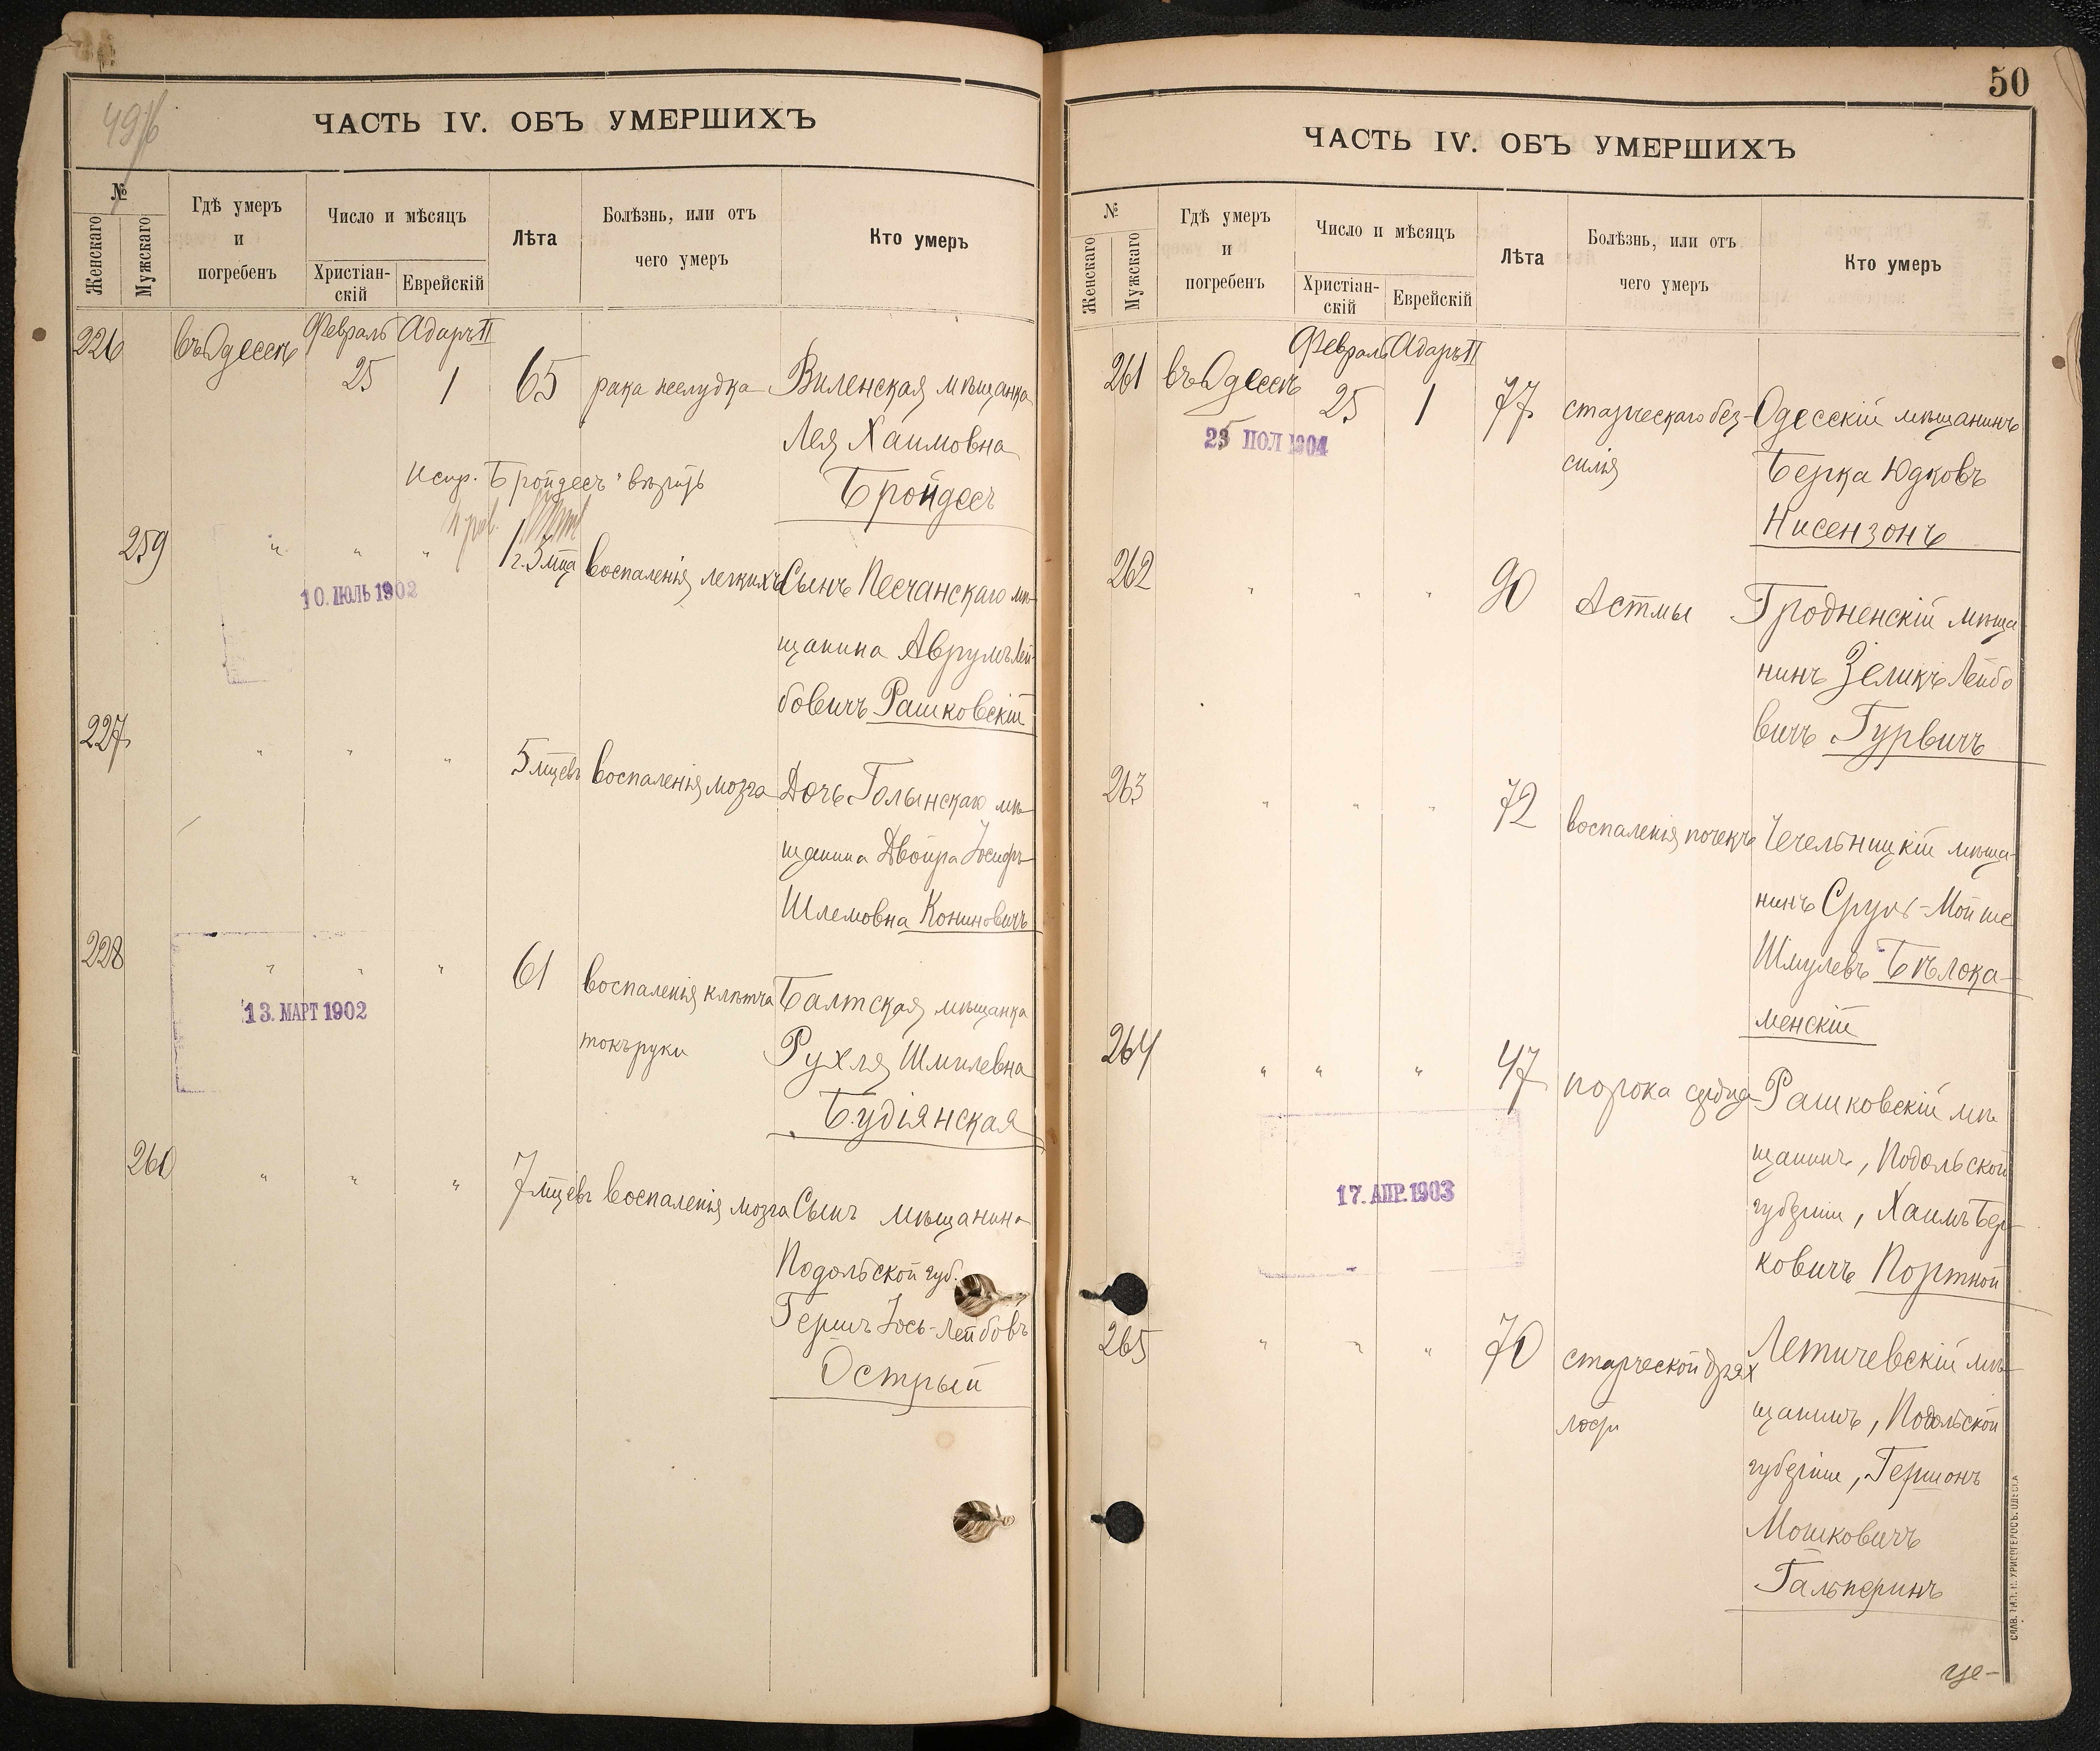 49 об
ЧАСТЬ IV. ОБЪ УМЕРШИХЪ
№
Женскаго
Мужскаго
Гдѣ умеръ
и
погребенъ
Число и мѣсяцъ
Христіан-
скій
Еврейскій
Лѣта
Болѣзнь, или отъ
чего умеръ
Кто умеръ
226 въ Одессѣ Февраль Адаръ II
25 1 65 рака желудка Виленская мѣщанка
Лея Хаимовна
Испр. "Бройдесъ" вѣрить
Бройдесъ
259 " " " 1 г. 3 мца воспаленія легкихъ Сынъ Песчанскаго мѣ-
10. ІЮЛЬ 1902
щанина Аврумъ Лей-
бовичъ Рашковскій
227 " " " 5 мцевъ воспаленія мозга Дочь Голынскаго мѣ-
щанина Двойра Іосифъ-
Шлемовна Кониновичъ
228 " " " 61 воспаленія клѣтча Балтская мѣщанка
13. МАРТ 1902
токъ руки Рухля Шмилевна
Будіянская
260 " " " 7 мцевъ воспаленія мозга Сынъ мѣщанина
Подольской губ.
Гершъ Іось-Лейбовъ
Острый
50
ЧАСТЬ IV. ОБЪ УМЕРШИХЪ
№
Женскаго
Мужскаго
Гдѣ умеръ
и
погребенъ
Число и мѣсяцъ
Христіан-
скій
Еврейскій
Лѣта
Болѣзнь, или отъ
чего умеръ
Кто умеръ
261 въ Одессѣ Февраль Адаръ II
25 1 77 старческаго без- Одесскій мѣщанинъ
ІЮЛ 1904
силія Берка Юдковъ
Нисензонъ
262 " " " 90 Астмы Гродненскій мѣща
нинъ Зеликъ Лейбо
вичъ Гурвичъ
263 " " " 72 воспаленія почекъ Чечельницкій мѣща-
нинъ Сруль-Мойше
Шмулевъ Бѣлока-
менскій
264 " " " 47 порока сердца Рашковскій мѣ
щанинъ, Подольской
17. АПР. 1903
губерніи, Хаимъ Бер-
ковичъ Портной
265 " " " 70 старческой дрях Летичевскій мѣ-
лости щанинъ, Подольской
губерніи, Гершонъ
Мошковичъ
Гальперинъ
це-